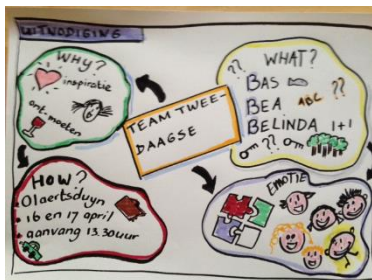 UITNODIGING
WHY?
inspiratie
ont.moeten
TEAM TWEE-
DAAGSE
WHAT?
??
BAS
BEA ABC ??
BELINDA 1+1
??
HOW?
Olaertsduyn
16 en 17 april
aanvang 13.30uur
EMOTIE